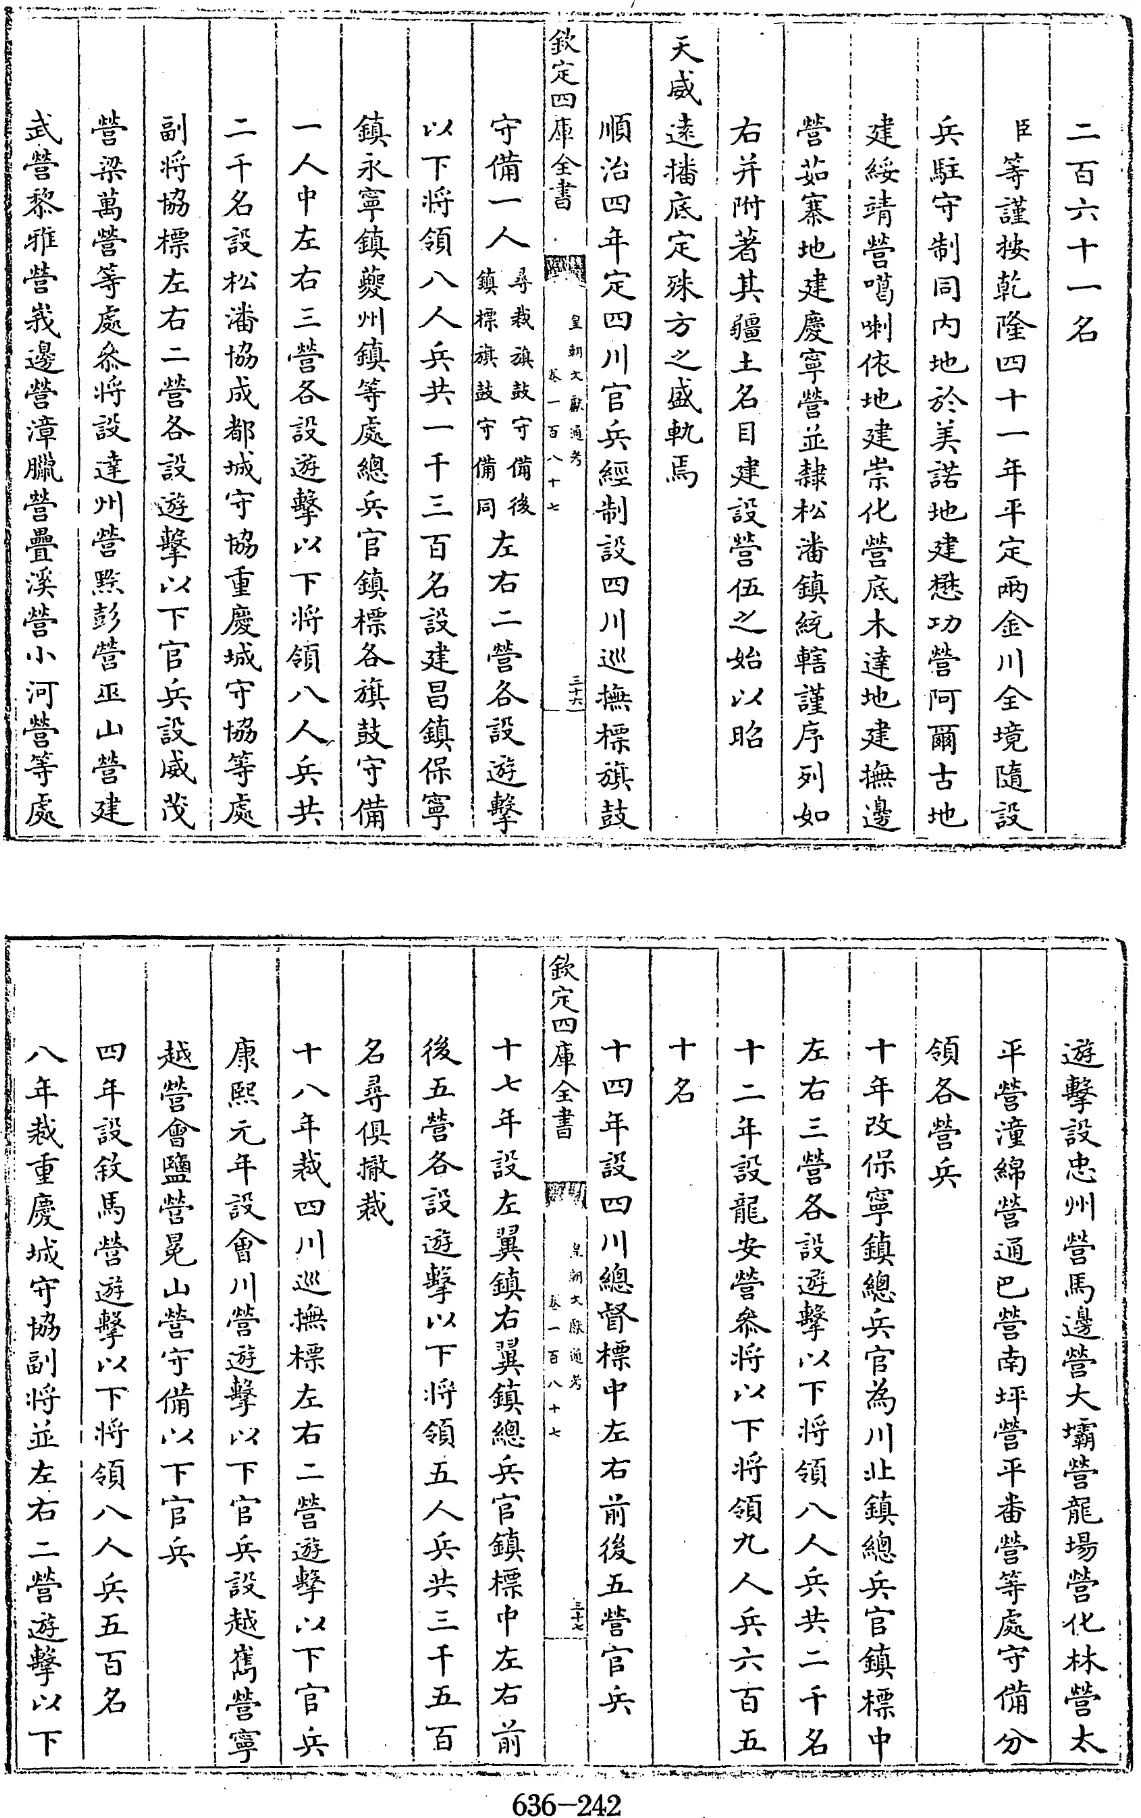 二百六十一名
臣等謹按乾隆四十一年平定兩金川全境隨設
兵駐守制同内地於美諾地建懋功營阿爾古地
建綏靖營噶喇依地建崇化營底木達地建撫邊
營茹寨地建慶寧營並隸松潘鎮統轄謹序列如
右并附著其疆土名目建設營伍之始以昭
天威遠播底定殊方之盛軌焉
順治四年定四川官兵經制設四川巡撫標旗鼓
欽定四庫全書
皇朝文獻通考
卷一百八十七
三十六
守備一人尋裁旗鼓守備後鎮標旗鼓守備同左右二營各設遊擊
以下將領八人兵共一千三百名設建昌鎮保寧
鎮永寧鎮夔州鎮等處總兵官鎮標各旗鼓守備
一人中左右三營各設遊擊以下將領八人兵共
二千名設松潘協成都城守協重慶城守協等處
副將協標左右二營各設遊擊以下官兵設威茂
營梁萬營等處叅將設達州營黔彭營巫山營建
武營黎雅營峩邊營漳臘營疊溪營小河營等處
遊擊設忠州營馬邊營大壩營龍場營化林營太
平營潼綿營通巴營南坪營平番營等處守備分
領各營兵
十年改保寧鎮總兵官為川北鎮總兵官鎮標中
左右三營各設遊擊以下將領八人兵共二千名
十二年設龍安營叅將以下將領九人兵六百五
十名
十四年設四川總督標中左右前後五營官兵
欽定四庫全書
皇朝文獻通考
卷一百八十七
三十七
十七年設左翼鎮右翼鎮總兵官鎮標中左右前
後五營各設遊擊以下將領五人兵共三千五百
名尋俱撤裁
十八年裁四川巡撫標左右二營遊擊以下官兵
康熙元年設會川營遊擊以下官兵設越雋營寧
越營會鹽營冕山營守備以下官兵
四年設敘馬營遊擊以下將領八人兵五百名
八年裁重慶城守協副將並左右二營遊擊以下
636-242